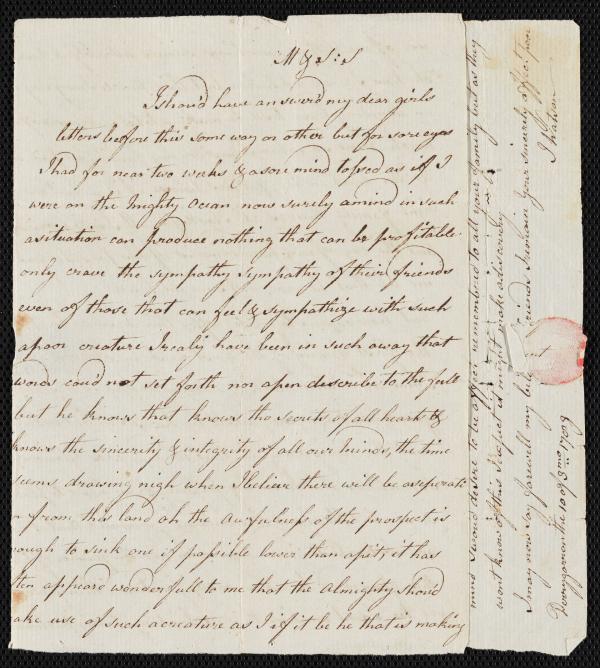 M & S: S
I shou'd have answerd my dear girls
letters before this some way or other but for sore eyes
I had for near two weeks & a sore mind tossed as if I
were on the mighty Ocean now surely a mind in such
a situation can produce nothing that can be profitable
only crave the sympathy sympathy of their friends
even of those that can feel & sympathize with such
a poor creature I realy have been in such away that
words could not set forth nor a pen describe to the full
but he knows that knows the secrets of all hearts &
knows the sincerity & integrity of all our minds, the time
seems drawing nigh when I believe there will be a seperati
n from this land oh the awfulness of the prospect is
nough to sink one if possible lower than a pit, it has
ten appeard wonderfull to me that the Almighty shoud
ake use of such a creature as I if it be he that is making
mind I woud desire to be affec remembred to all your family but as they
wont know of this scrape it might make a discovery
I may now say farewell my friends I remain your sincerely affect poor
J Watson
the 10 of 3 mo